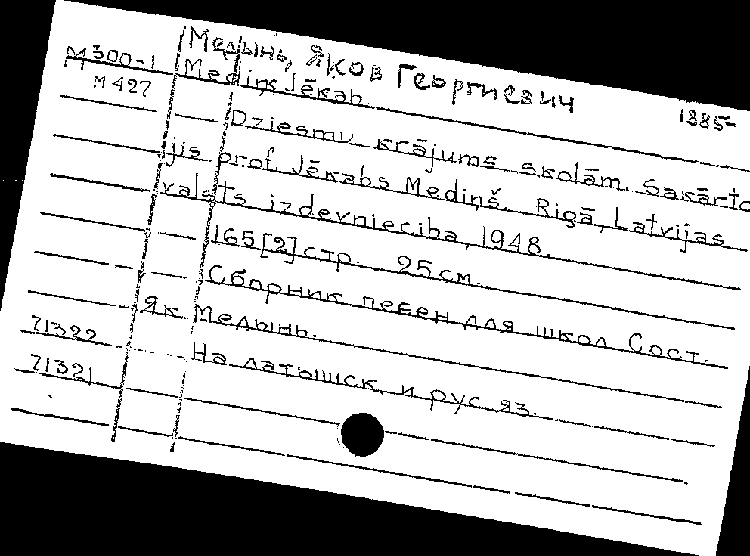 Медынь, Яков Георгиевич
М300-1 Mediņ Jēkab 1885-
М427
Dziesmu krājums skolām. Sakārto-
jis prof. Jēkabs Mediņš. Rīgā, Latvijas
valsts izdevniecība, 1948.
165[2]стр. 25см.
Сборник песен для школ Сост.
Як Медынь.
71322 На латышск. и рус. яз.
71321